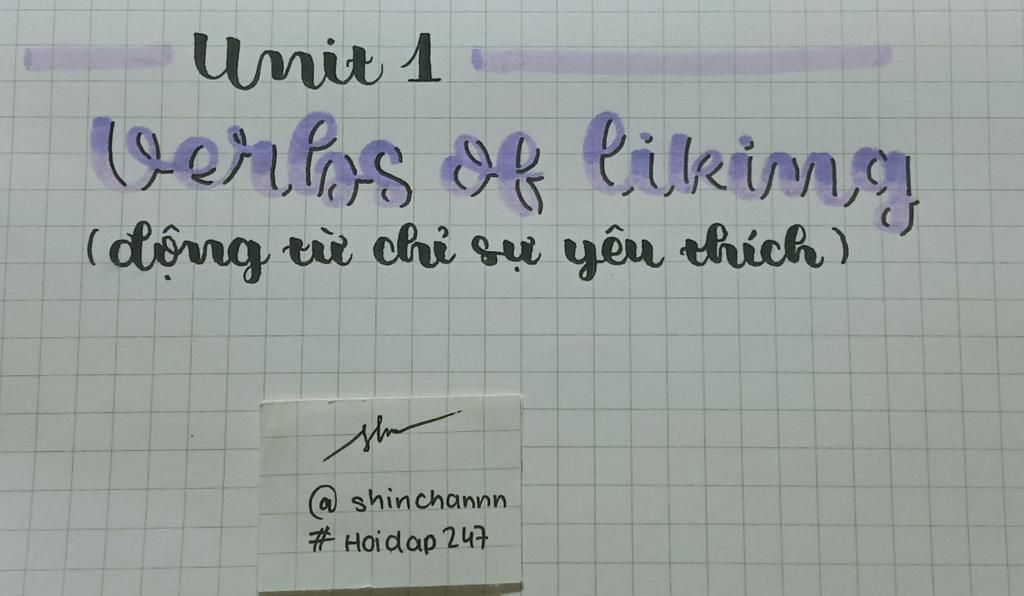 Unit 1
Verbs of liking
(động từ chỉ sự yêu thích)
@ shinchannn
# Hoidap 247